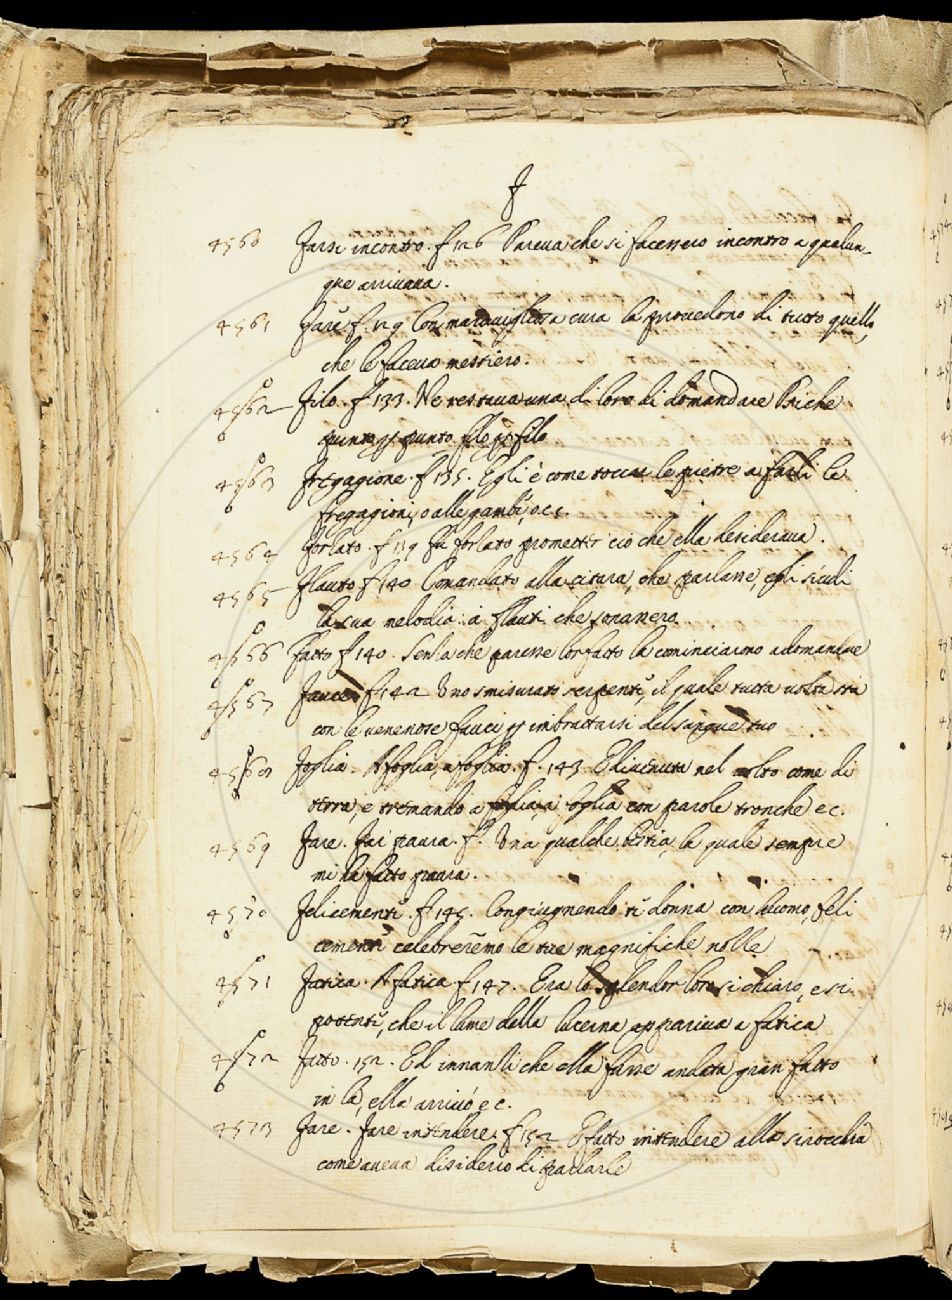 F
4560 Farsi incontro. f 126 Pareva che si facessero incontro a qualun-
que arrivava.
4561 Fare f. 129 Con maravigliosa cura la provedono di tutto quello,
che le faceva mestiero.
4562 Filo. f 133. Ne restava una di loro di domandare Psiche
punto per punto filo per filo
4563 Fregagione. f 135. Egli è come le pietre a farli le
fregagioni, o alle gambe, ec.
4564 Forzato. f 139 fu forzato prometter ciò che ella desiderava.
4565 Flauto f 140 Comandato alla citara, che parlasse, egli si udì
la sua melodia: a flauti che sonassero.
4566 Fatto f 140. Senza che paresse lor fatto la cominciarno a domandare
4567 Fauce f 142 Uno smisurato serpente, il quale tutta volta sta
con le venenose fauci per imbrattarsi del sangue tuo
4568 Foglia. A foglia, a foglia. f. 143. E divenuta nel volto come di
terra, e tremando a foglia, a foglia con parole tronche ec.
4569 Fare. Far paura. f. Una qualche bestia, la quale sempre
mi ha fatto paura.
4570 Felicemente f 145. Congiugnendo te donna con uomo, feli
cemente celebreremo le tue magnifiche nozze
4571 Fatica. A fatica f 147. Era lo splendor loro si chiaro, e si
potente, che il lume della lucerna appariva a fatica
4572 Fatto. 152. Ed innanzi che ella fusse andata gran fatto
in là, ella arrivò ec.
4573 Fare. Fare intendere. f 152 E fatto intendere alla sirocchia
come aveva disiderio di parlarle